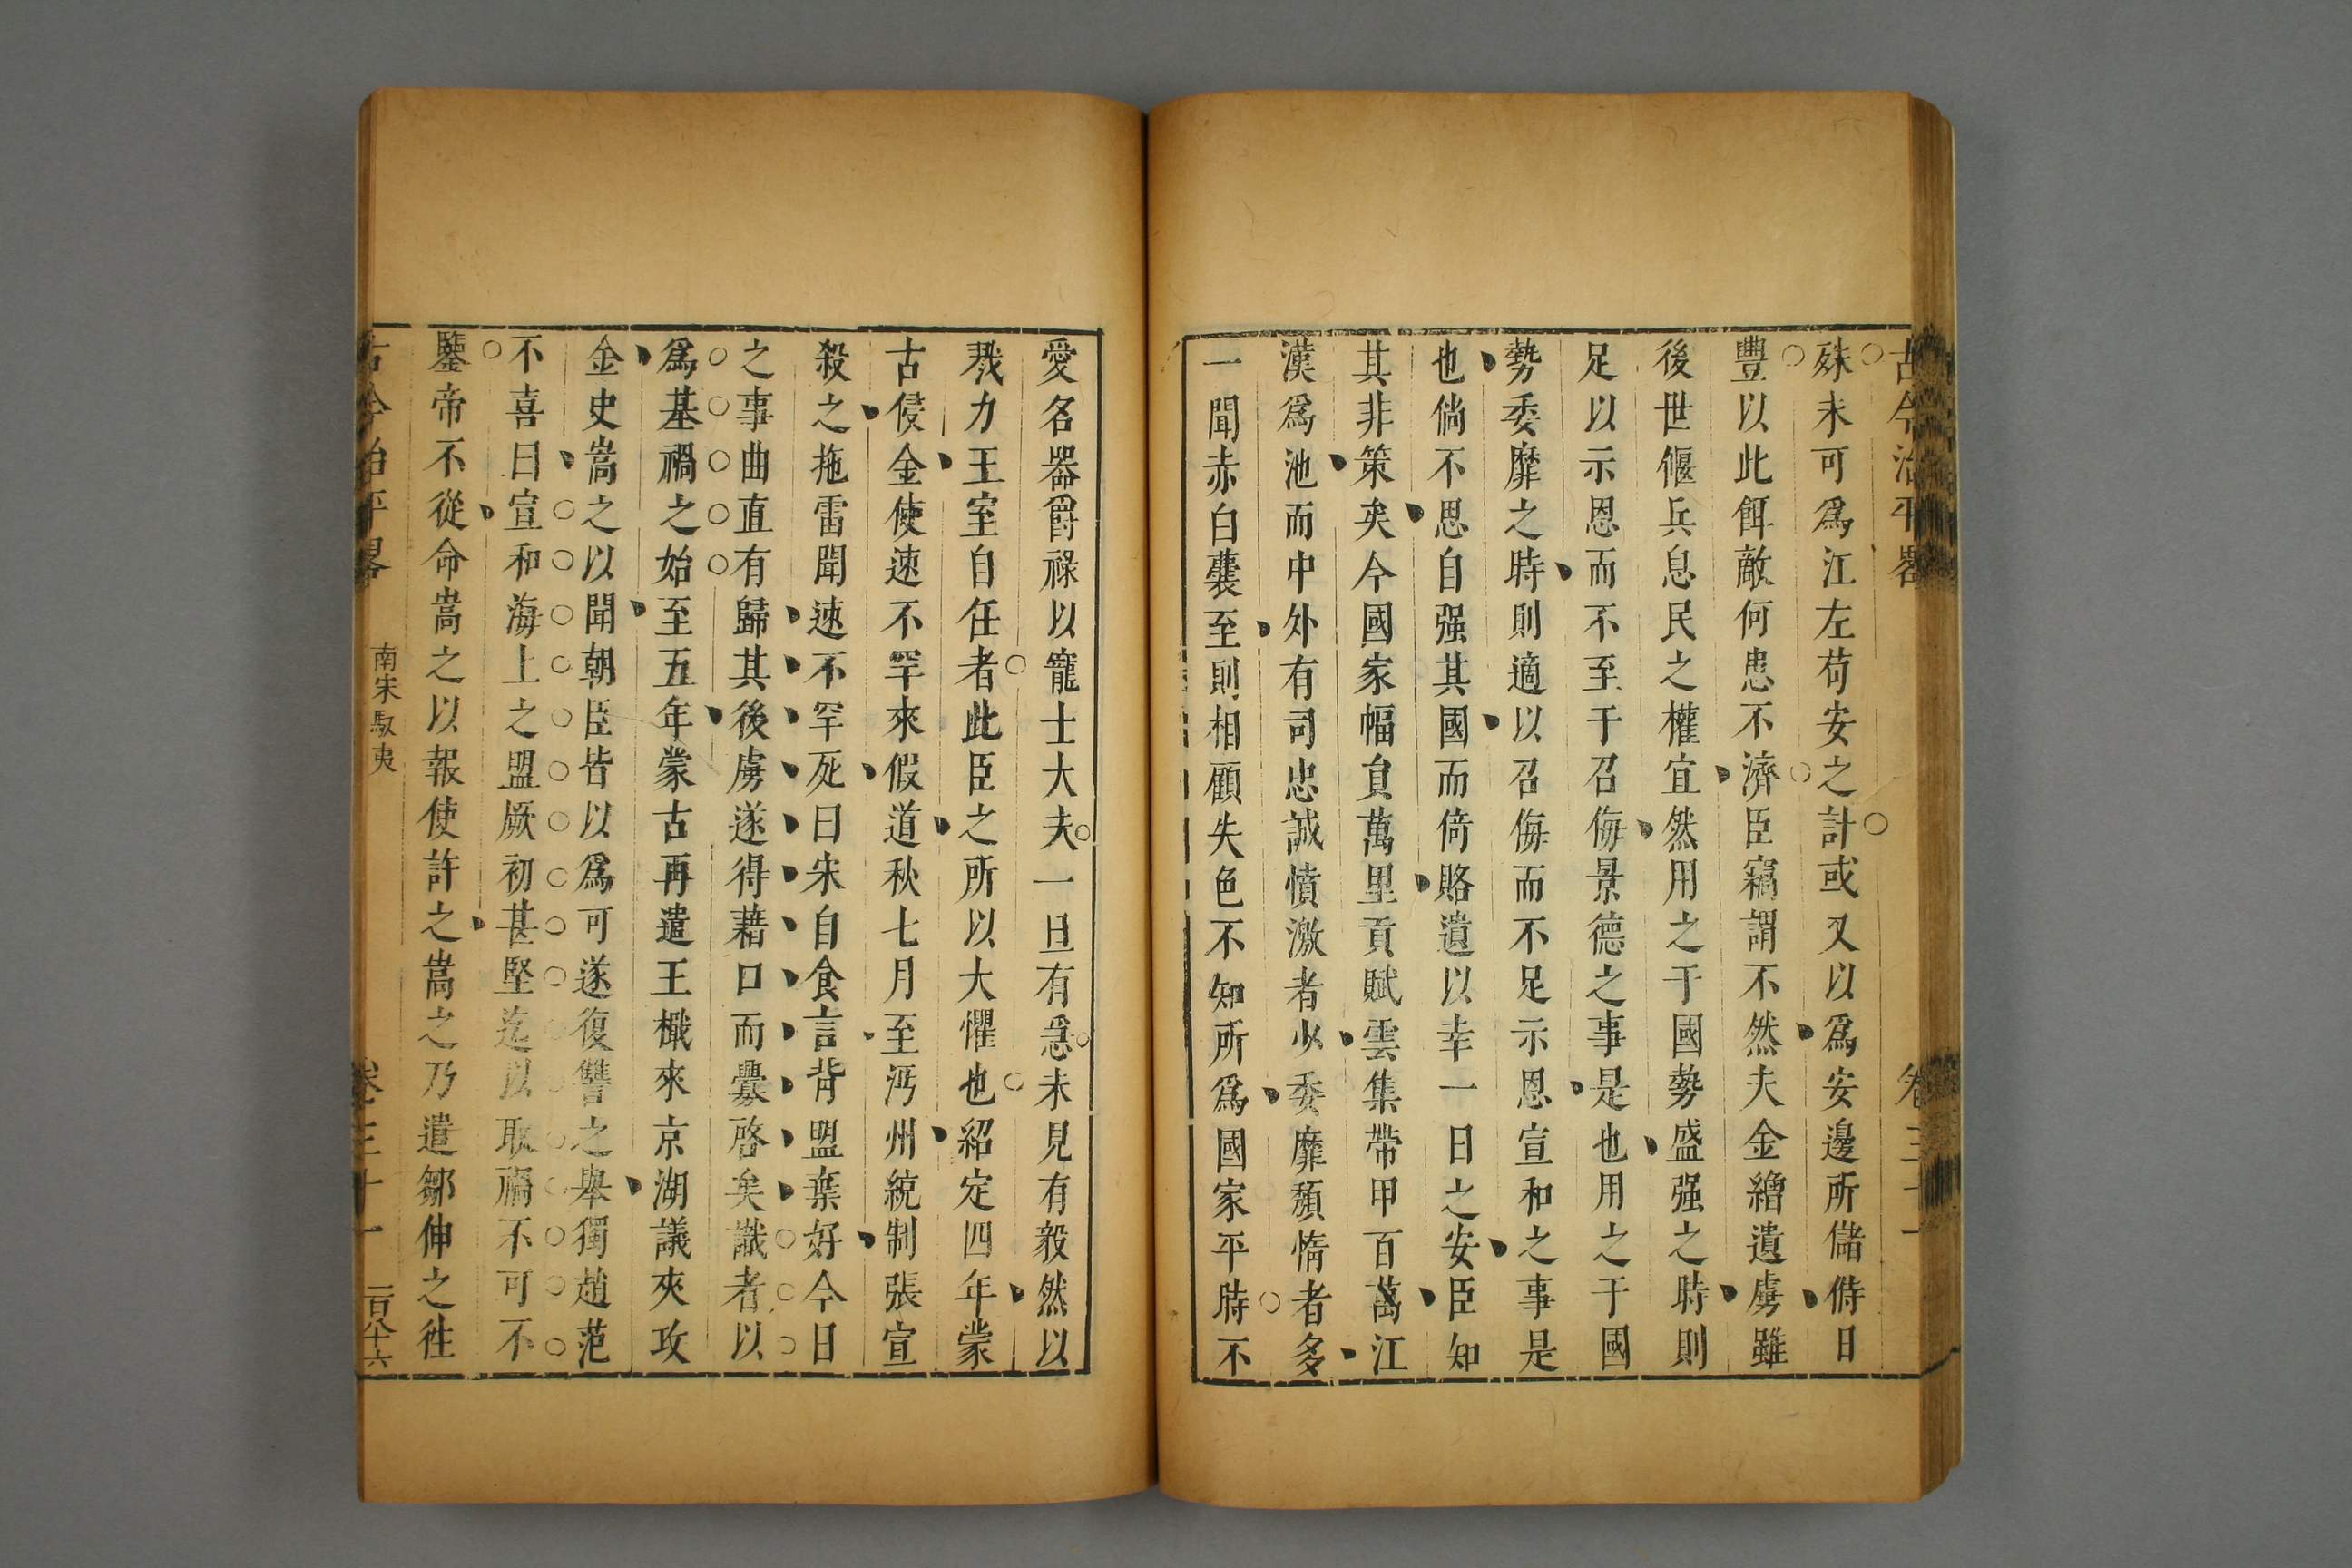 古今治平畧 卷三十一
殊未可爲江左苟安之計或又以爲安邊所儲偫日
豐以此餌敵何患不濟臣竊謂不然夫金繒遺虜雖
後世偃兵息民之權宜然用之于國勢盛强之時則
足以示恩而不至于召侮景德之事是也用之于國
勢委靡之時則適以召侮而不足示恩宣和之事是
也倘不思自强其國而倚賂遺以幸一日之安臣知
其非策矣今國家幅負萬里貢賦雲集帶甲百萬江
漢爲池而中外有司忠誠憤激者少委靡頽惰者多
一聞赤白囊至則相顧失色不知所爲國家平時不
愛名器爵祿以寵士大夫一旦有急未見有毅然以
戮力王室自任者此臣之所以大懼也紹定四年蒙
古侵金使速不罕來假道秋七月至沔州統制張宣
殺之拖雷聞速不罕死曰宋自食言背盟棄好今日
之事曲直有歸其後虜遂得藉口而釁啓矣識者以
爲基禍之始至五年蒙古再遣王檝來京湖議夾攻
金史嵩之以聞朝臣皆以爲可遂復讐之舉獨趙范
不喜曰宣和海上之盟厥初甚堅迄以取禍不可不
鑒帝不從命嵩之以報使許之嵩之乃遣鄒伸之徃
古今治平畧 南宋馭夷 卷三十一 一百八十六